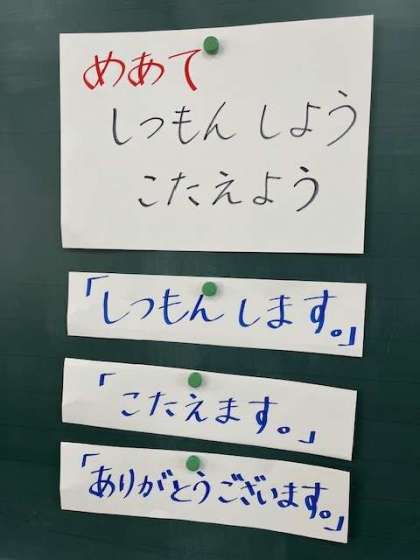 めあて
しつもん しよう
こたえよう
「しつもん します。」
「こたえます。」
「ありがとうございます。」